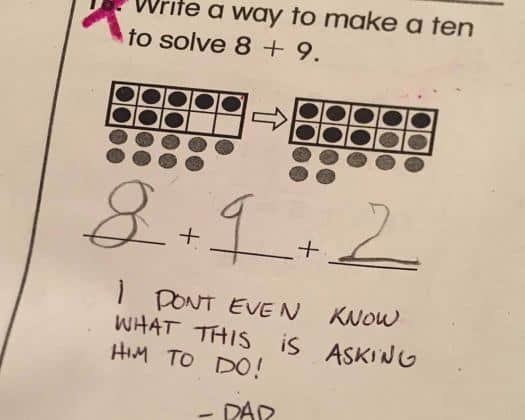 16. Write a way to make a ten
to solve 8 + 9.
8 + 9 + 2
I DONT EVEN KNOW
WHAT THIS IS ASKING
HIM TO DO!
- DAD